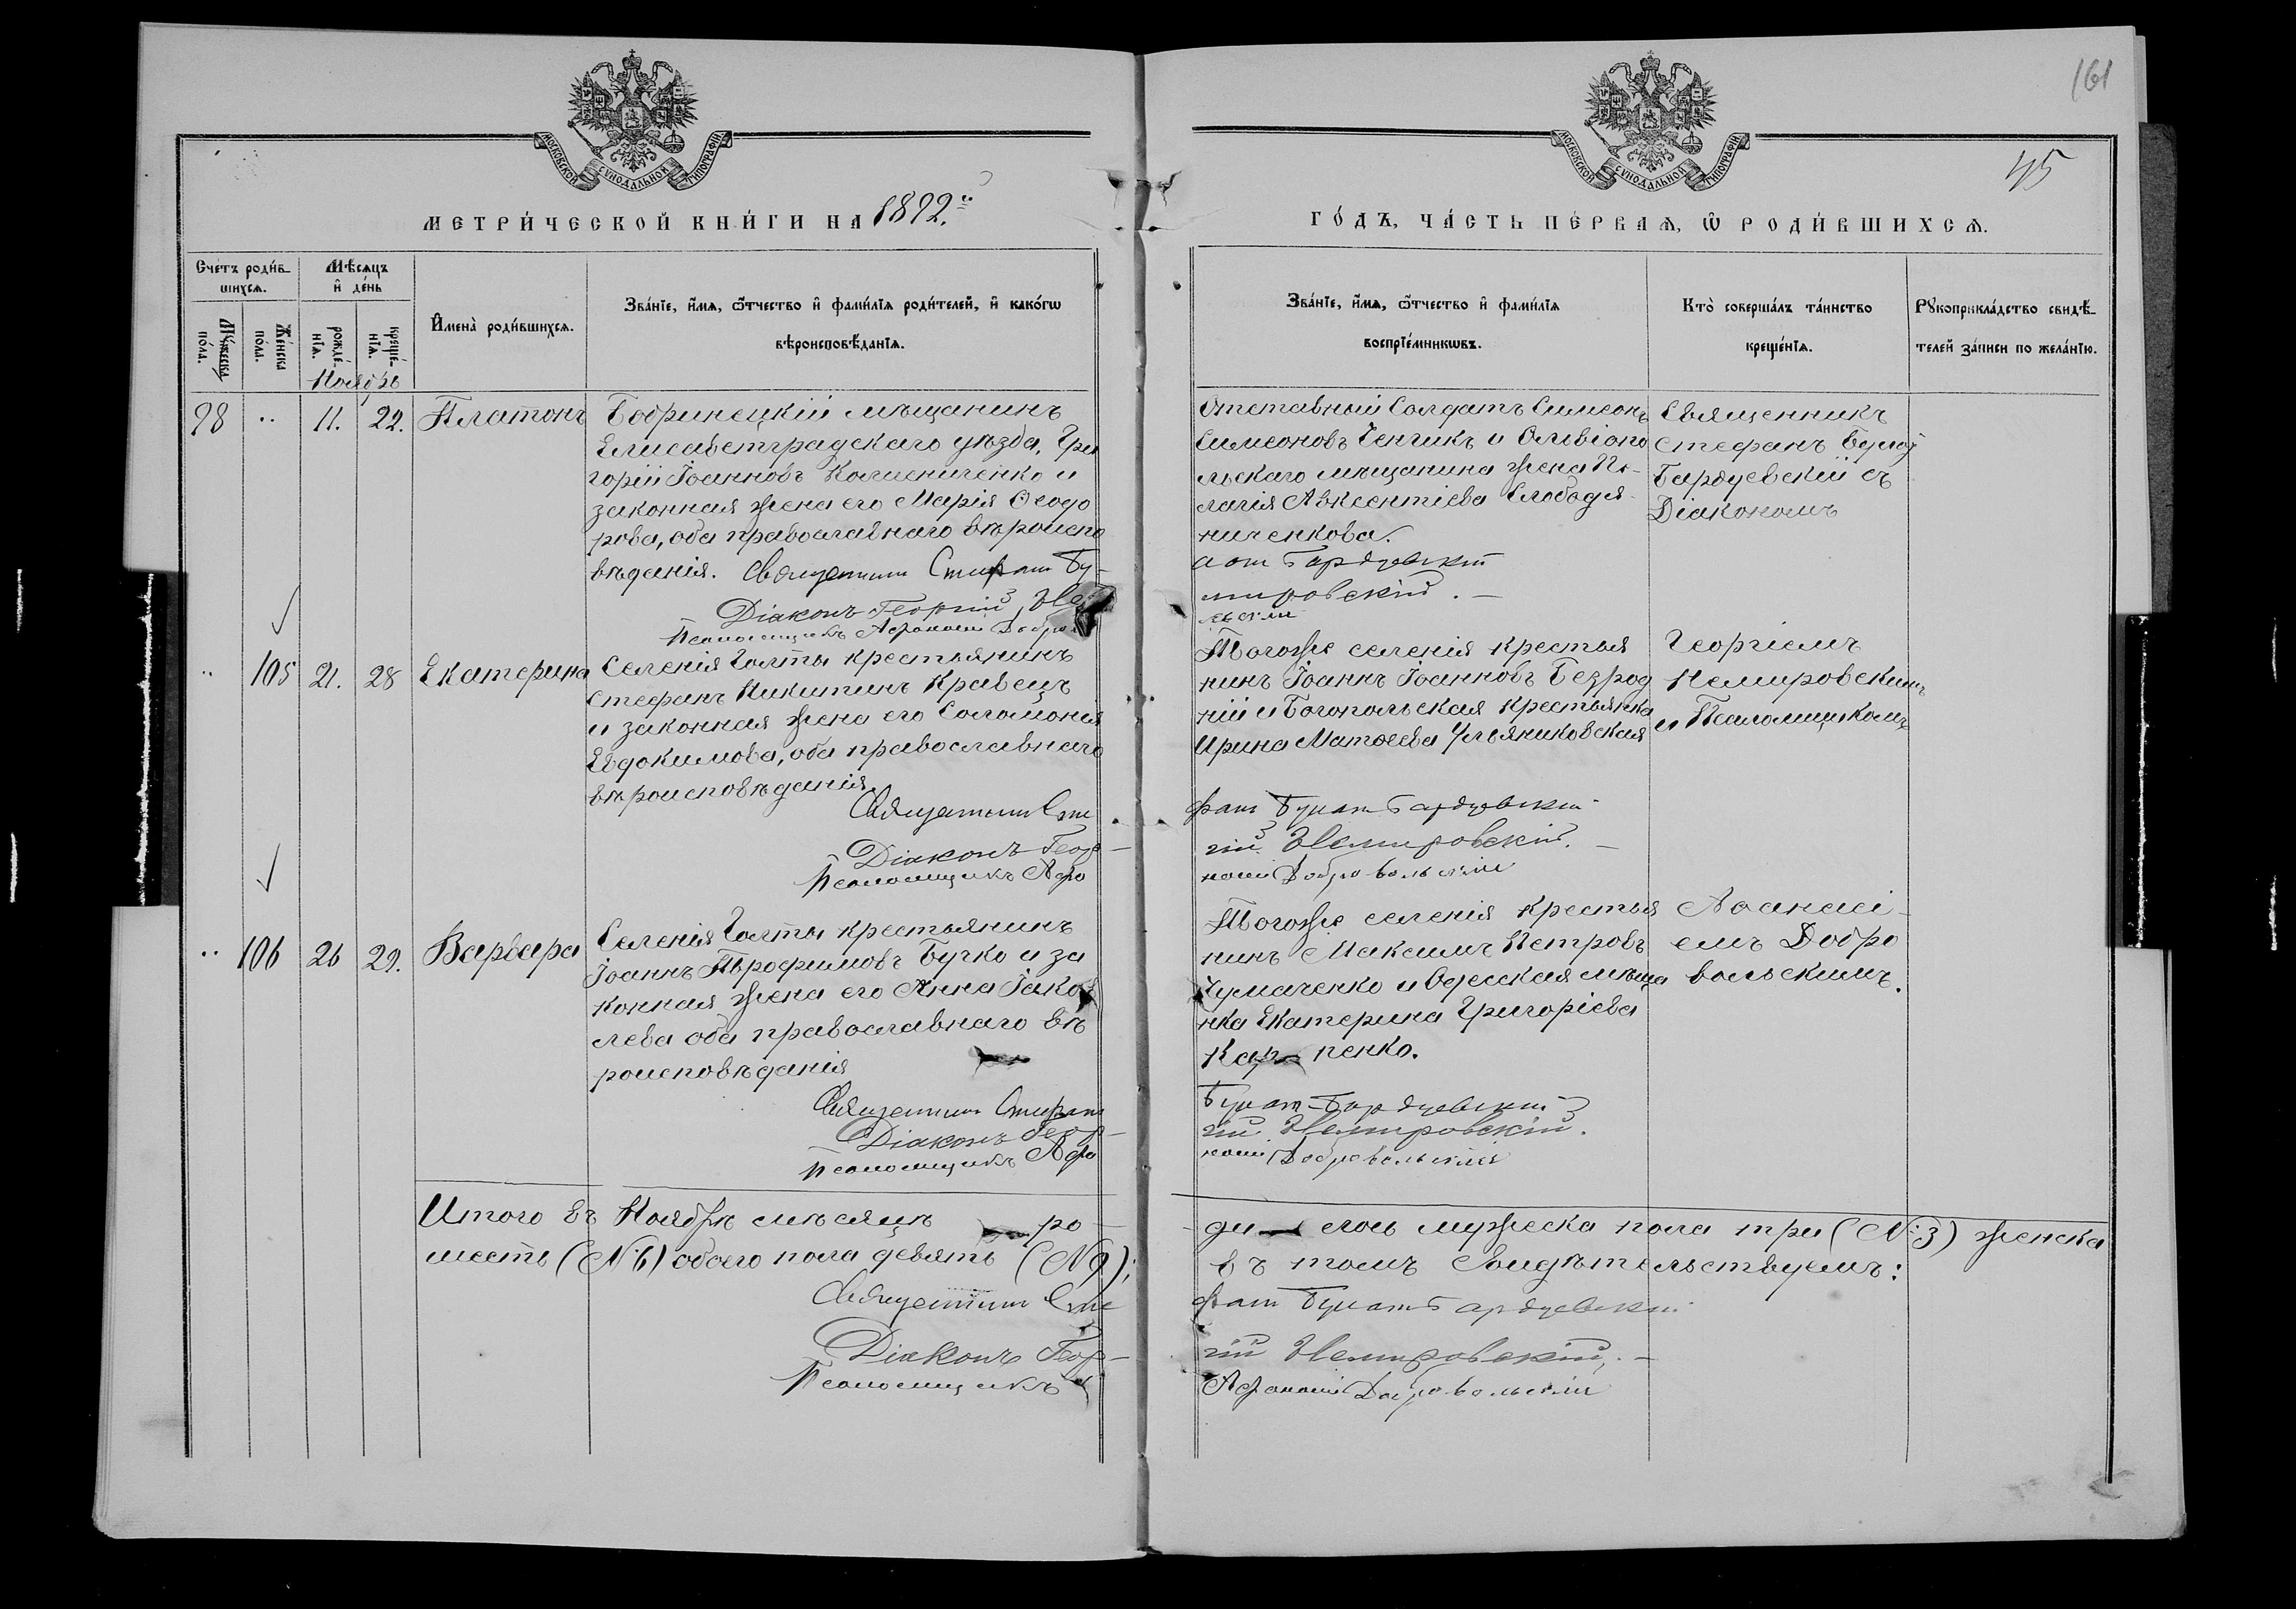 161
45
МОСКОВСКОЙ СУНОДАЛЬНОЙ ТИПОГРАФІИ
МОСКОВСКОЙ СУНОДАЛЬНОЙ ТИПОГРАФІИ
МЕТРИ́ЧЕСКОЙ КНИ́ГИ НА 1892.й
ГО́ДЪ, ЧА́СТЬ ПЕ́РВАѦ, Ѿ РОДИ́ВШИХСѦ.
Сче́тъ роди́в-
шихсѧ.
Мꙋ́жеска по́ла.
Же́нска по́ла.
Мѣ́сѧцъ
и҆ де́нь
рожде́-
нїѧ.
креще́-
нїѧ.
Ноябрь
И҆мена̀ роди́вшихсѧ.
Зва́нїе, и҆́мѧ, ѻ҆́тчество и҆ фами́лїѧ роди́телей, и҆ како́гѡ
вѣроисповѣ́данїѧ.
Зва́нїе, и҆́мѧ, ѻ҆́тчество и҆ фами́лїѧ
воспрїе́мникѡвъ.
Кто̀ соверша́лъ та́инство
креще́нїѧ.
Рꙋкоприкла́дство свидѣ́-
телей за́писи по жела́нїю.
98 .. 11. 22. Платонъ
Бобринецкій мѣщанинъ
Елисаветградскаго уѣзда, Гри
горій Іоанновъ Колисниченко и
законная жена его Марія Ѳеодо
рова, оба православнаго вѣроиспо
вѣданія. Священникъ Стефанъ Бу-
Діаконъ Георгій Не
Псаломщикъ Афанасій Добро
Отставный Солдатъ Симеонъ
Симеоновъ Ченчикъ и Ольвіопо
льскаго мѣщанина жена Пе-
лагія Авксентіева Слободя-
ниченкова.
латъ Бардуевскій
мировскій. —
льскій
Священникъ
Стефанъ Булат
Бардуевскій съ
Діакономъ
.. 105 21. 28 Екатерина
Селенія Голты крестьянинъ
Стефанъ Никитинъ Кравецъ
и законная жена его Соломонія
Евдокимова, оба православнаго
вѣроисповѣданія.
Священникъ Сте
Діаконъ Геор-
Псаломщикъ Афа
Тогоже селенія крестья
нинъ Іоаннъ Іоанновъ Безрод
ній и Богопольская крестьянка
Ирина Матѳеева Ульяниковская
фанъ Булатъ Бардуевскій
гій Немировскій. —
насій Добровольскій
Георгіемъ
Немировскимъ
и Псаломщикомъ
.. 106 26 29. Варвара
Селенія Голты крестьянинъ
Іоаннъ Трофимовъ Бучко и за
конная жена его Анна Іаков
лева оба православнаго вѣ
роисповѣданія
Священникъ Стефанъ
Діаконъ Геор-
Псаломщикъ Афа
Тогоже селенія крестья
нинъ Максимъ Петровъ
Чумаченко и Одесская мѣща
нка Екатерина Григоріева
Кар пенко.
Булатъ-Бардуевскій
гій Немировскій.
насій Добровольскій
Аѳанасі-
емъ Добро
вольскимъ.
Итого въ Ноябрѣ мѣсяцѣ ро-
-ди лось мужеска пола три (№ 3) женска
шесть (№ 6) обоего пола девять (№ 9);
въ томъ свидѣтельствуемъ:
Священникъ Сте
фанъ Булатъ Бардуевскій
Діаконъ Геор-
гій Немировскій. —
Псаломщикъ
Афанасій Добровольскій